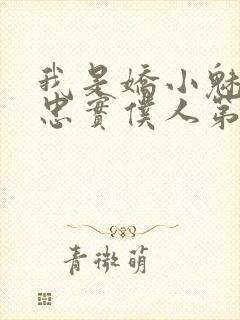 我是嬌小魅
忠實僕人第
青微萌